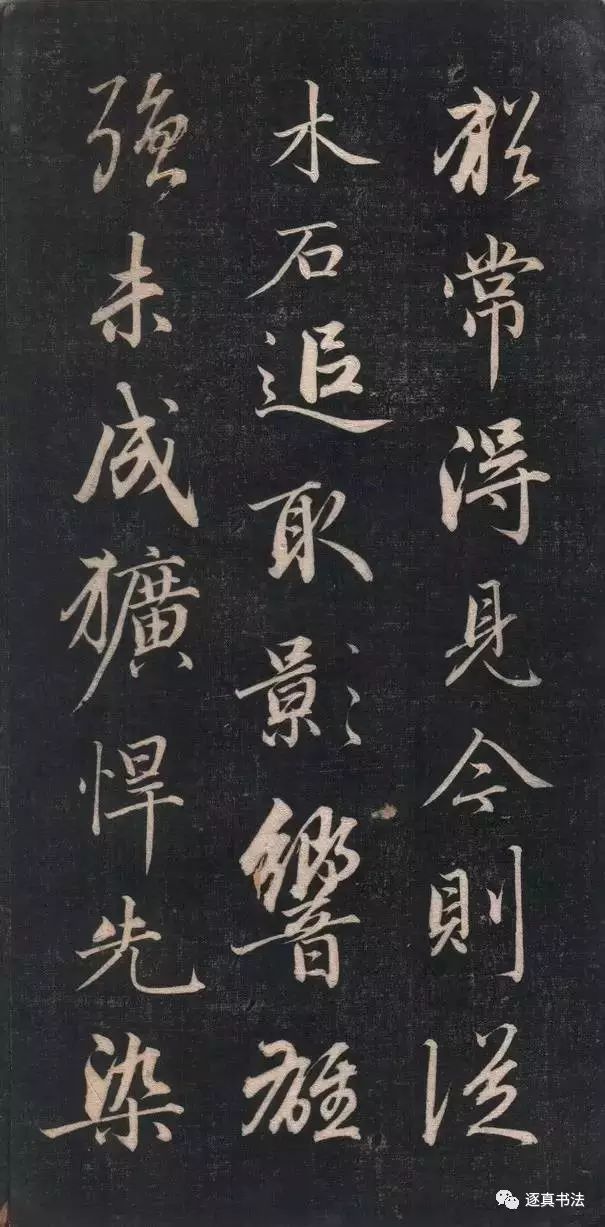 常得見今則從
木石追取影響雄
強未成獷悍先染
逐真书法